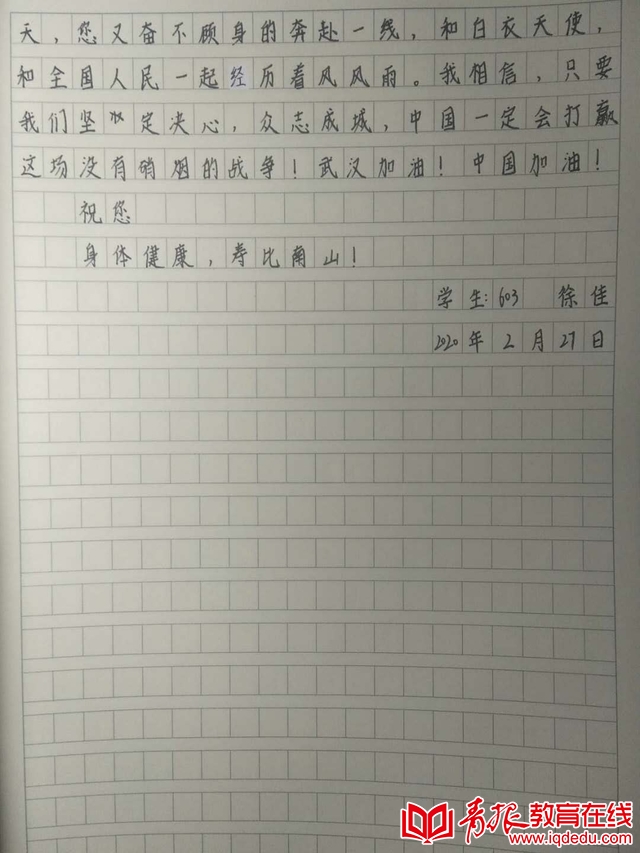 天，您又奋不顾身的奔赴一线，和白衣天使，
和全国人民一起经历着风风雨。我相信，只要
我们坚定决心，众志成城，中国一定会打赢
这场没有硝烟的战争！武汉加油！中国加油！
祝您
身体健康，寿比南山！
学生：603 徐佳
2020年2月27日
青报教育在线
www.iqdedu.com